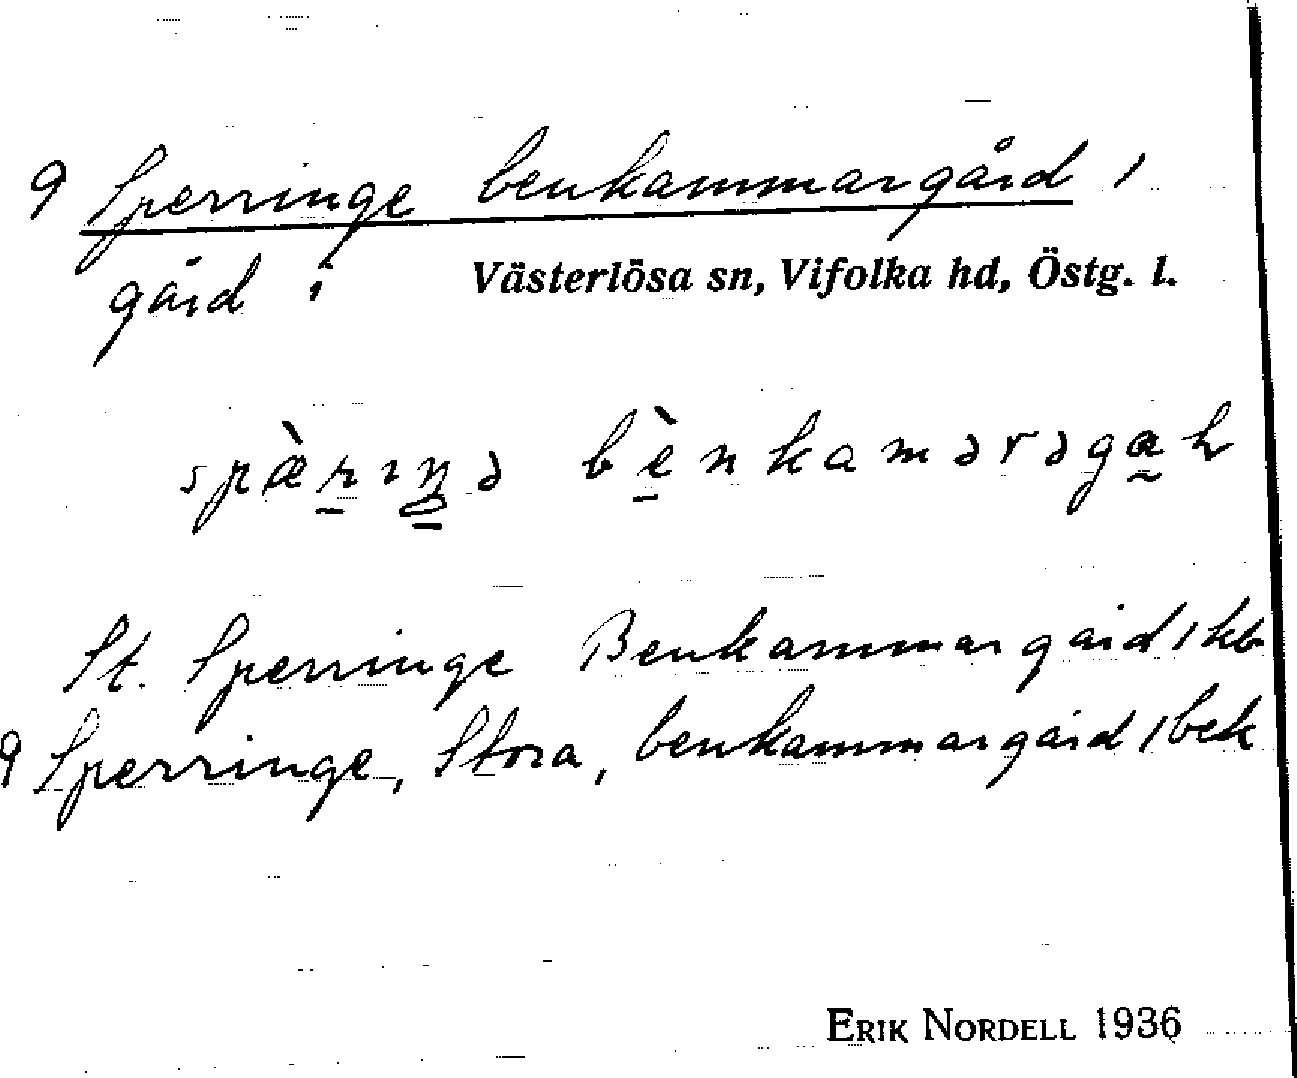 9 Sperringe benkammargård /
gård i Västerlösa sn, Vifolka hd, Östg. l.
spæ̀rɪŋə bènkamərəgaɦ
St. Sperringe Benkammargård / kb
9 Sperringe, Stora, benkammargård / bek
ERIK NORDELL 1936